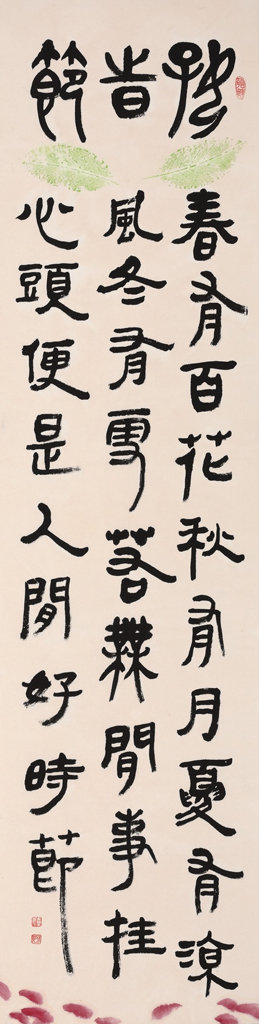 好旹節
春有百花秋有月夏有涼
風冬有雪若無閒事挂
心頭便是人閒好時節